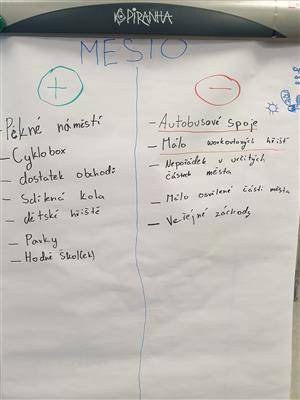 PIRANHA
MĚSTO
+
- Pěkné náměstí
- Cyklobox
- dostatek obchodů
- Sdílená kola
- dětské hřiště
- Parky
- Hodně škol(ek)
-
- Autobusové spoje
- Málo workoutových hřišť
- Nepořádek v určitých
částech města
- Málo osvícené části města
- Veřejné záchody